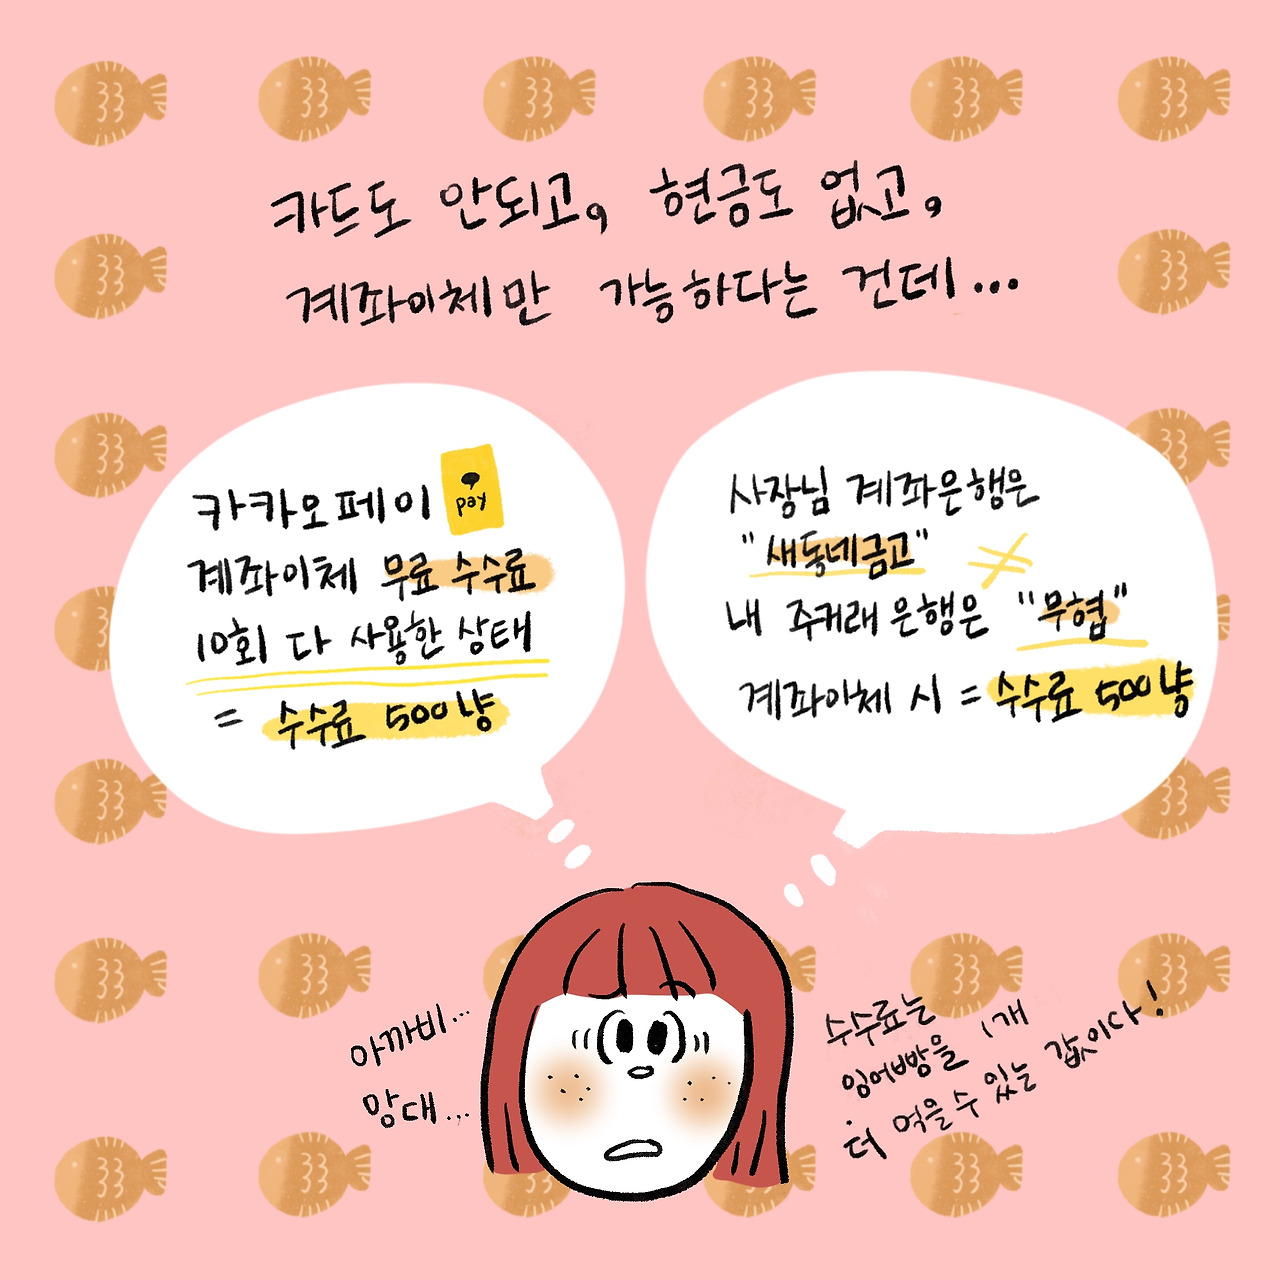 카드도 안되고, 현금도 없고,
계좌이체만 가능하다는 건데...
카카오페이
pay
계좌이체 무료 수수료
10회 다 사용한 상태
= 수수료 500냥
사장님 계좌은행은
"새동네금고"
내 주거래 은행은 "무협"
계좌이체 시 = 수수료 500냥
아까비...
망대...
수수료는
잉어빵을 1개
더 먹을 수 있는 값이다!